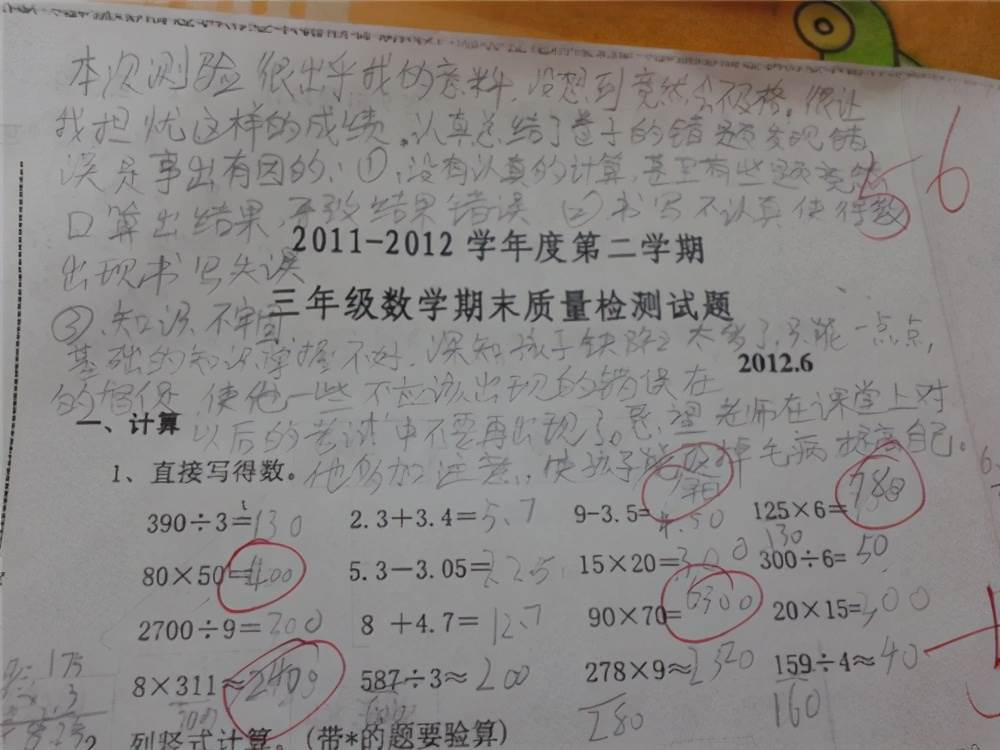 本次测验很出乎我的意料,没想到竟然会不及格。很让
我担忧这样的成绩。认真总结了卷子的错题发现错
误是事出有因的:①,没有认真的计算,甚至有些题竟然
口算出结果,导致结果错误 ②书写不认真使得数
出现书写失误
56
2011-2012学年度第二学期
三年级数学期末质量检测试题
③、知识不牢固
基础的知识掌握不好,深知孩子缺陷之太多了,只能一点点,
2012.6
的督促,使他一些不应该出现的错误在
以后的考试中不要再出现了。恳望老师在课堂上对
他多加注意,使孩子能改掉毛病提高自己。
一、计算
1、直接写得数。
390÷3=130 2.3+3.4=5.7 9-3.5= 4.50 125×6=780
130
80×50=400 5.3-3.05=2.25 15×20=300 300÷6=50
2700÷9=200 8 +4.7=12.7 90×70=6300 20×15=300
8×311≈2409 587÷3≈200 278×9≈2520 159÷4≈40
280 160
列竖式计算。(带*的题要验算)